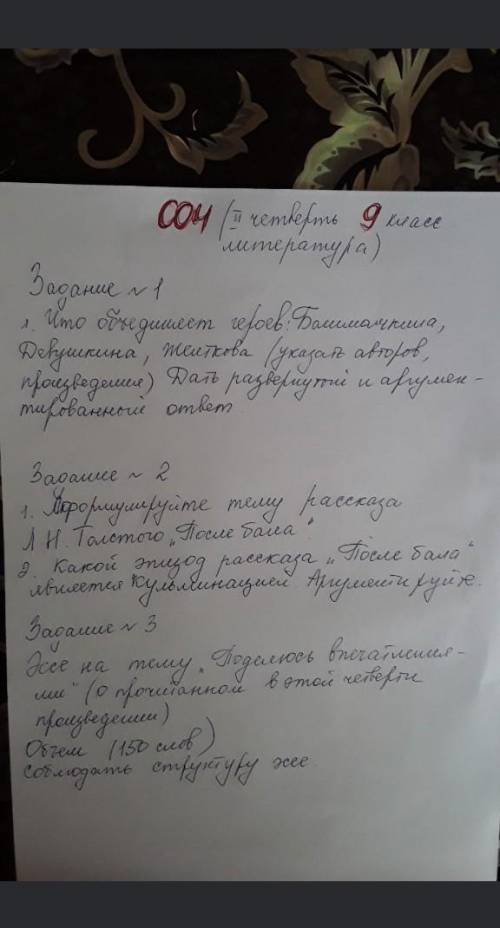 СОЧ (II четверть 9 класс
литература)
Задание ~ 1
1. Что объединяет героев: Башмачкина,
Девушкина, Желткова (указать авторов,
произведения) Дать развернутый и аргумен-
тированный ответ
Задание ~ 2
1. Сформулируйте тему рассказа
Л.Н. Толстого "После бала".
2. Какой эпизод рассказа "После бала"
является кульминацией. Аргументируйте.
Задание ~ 3
Эссе на тему "Поделюсь впечатления-
ми" (о прочитанном в этой четверти
произведении)
Объем (150 слов)
Соблюдать структуру эссе.